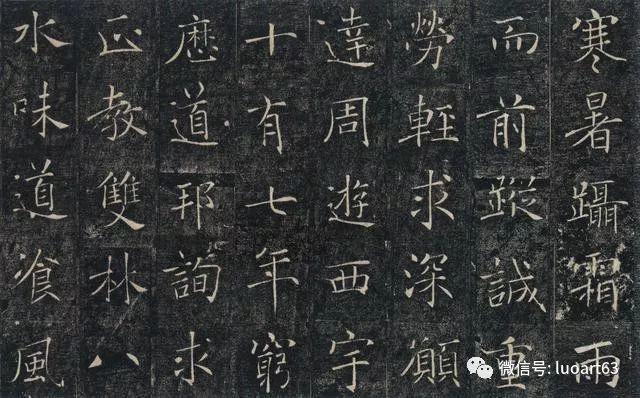 寒暑躡霜雨
而前蹤誠重
勞輕求深願
達周遊西宇
十有七年窮
歷道邦詢求
正教雙林八
水味道飡風
微信号: luoart63